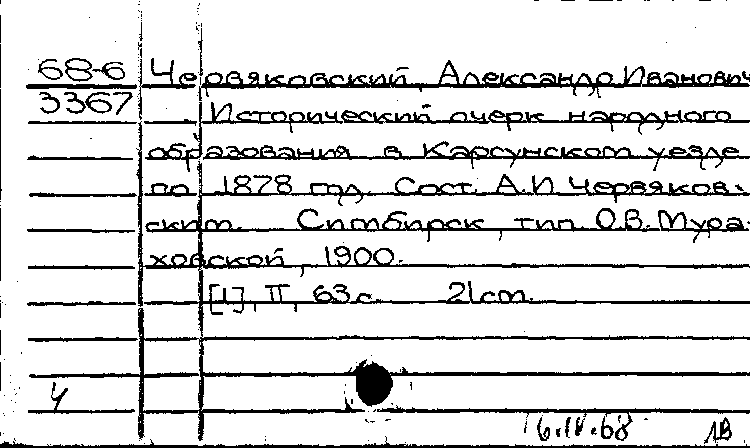 68-6 Червяковский, Александр Иванович
3367 Исторический очерк народного
образования в Карсунском уезде
по 1878 год. Сост. А.И. Червяков-
ским. Симбирск, тип. О.В. Мура-
ховской, 1900.
[1], II, 63 с. 21 см.
16.IV.68